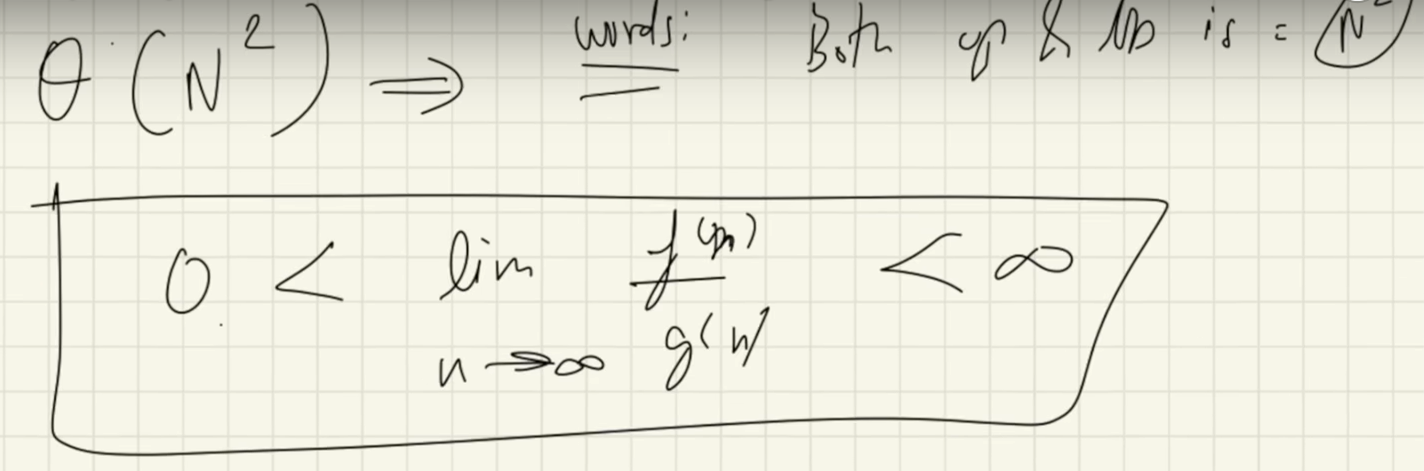 θ (N²) ⇒ words: Both up & lb is = N²
0 < lim f(n) < ∞
n → ∞ g(n)